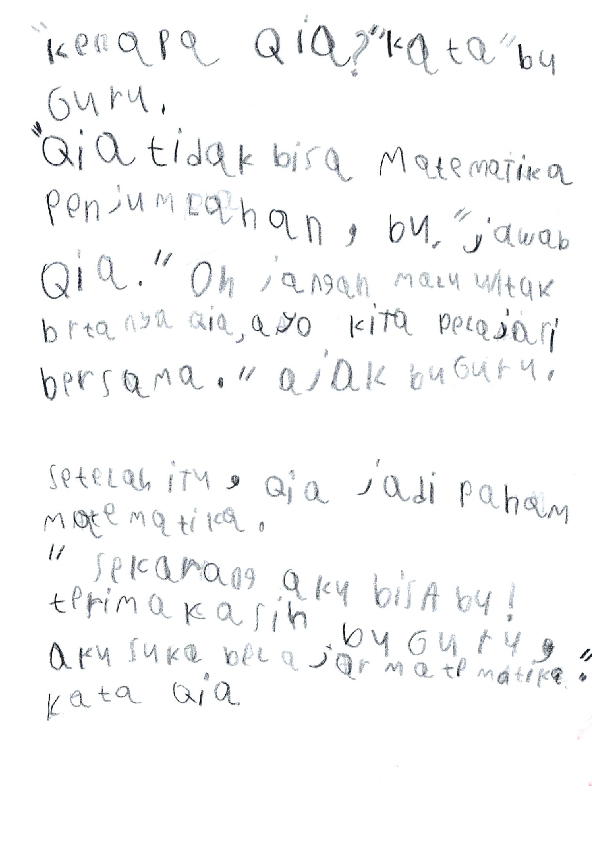 "kenapa Qia?" kata "bu
Guru.
"Qia tidak bisa Matematika
Penjumlahan, bu. "jawab
Qia." Oh jangan malu untuk
brtanya qia, ayo kita pelajari
bersama." ajak bu Guru.
setelah itu, Qia jadi paham
matematika.
" sekarang aku bisA bu!
terima kasih bu Guru,
aku suka belajar matematika."
kata Qia